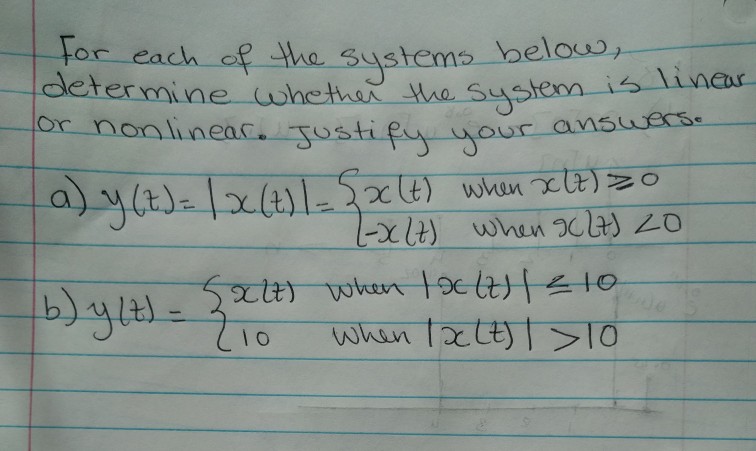 For each of the systems below,
determine whether the system is linear
or nonlinear. Justify your answers.
a) y(t) = |x(t)| = { x(t) when x(t) ≥ 0
-x(t) when x(t) < 0
b) y(t) = { x(t) when |x(t)| ≤ 10
10 when |x(t)| > 10